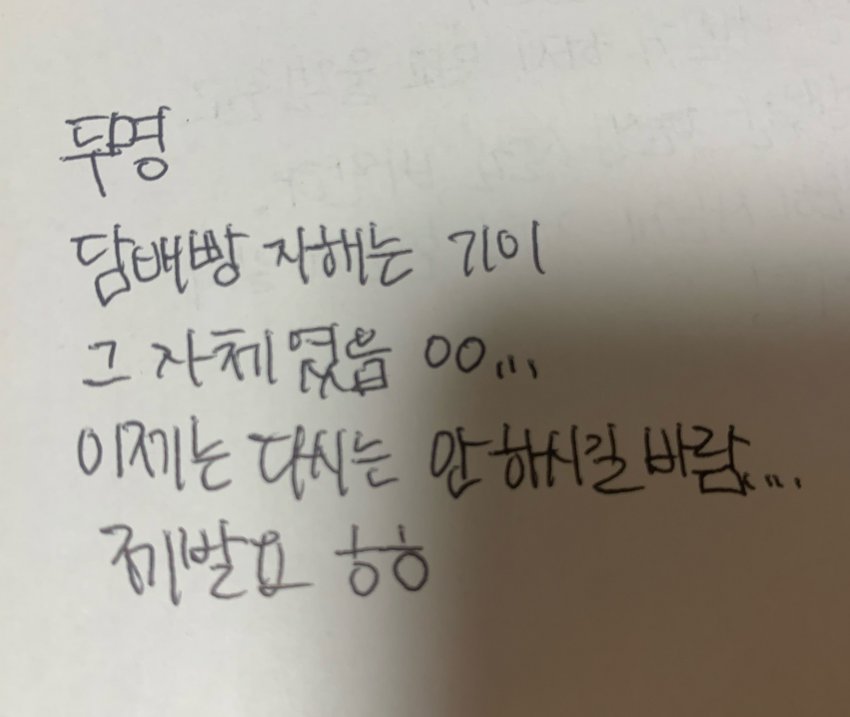 투명
담배빵 자해는 기이
그 자체였음 ㅇㅇ...
이제는 다시는 안 하시길 바람....
제발요 ㅎㅎ